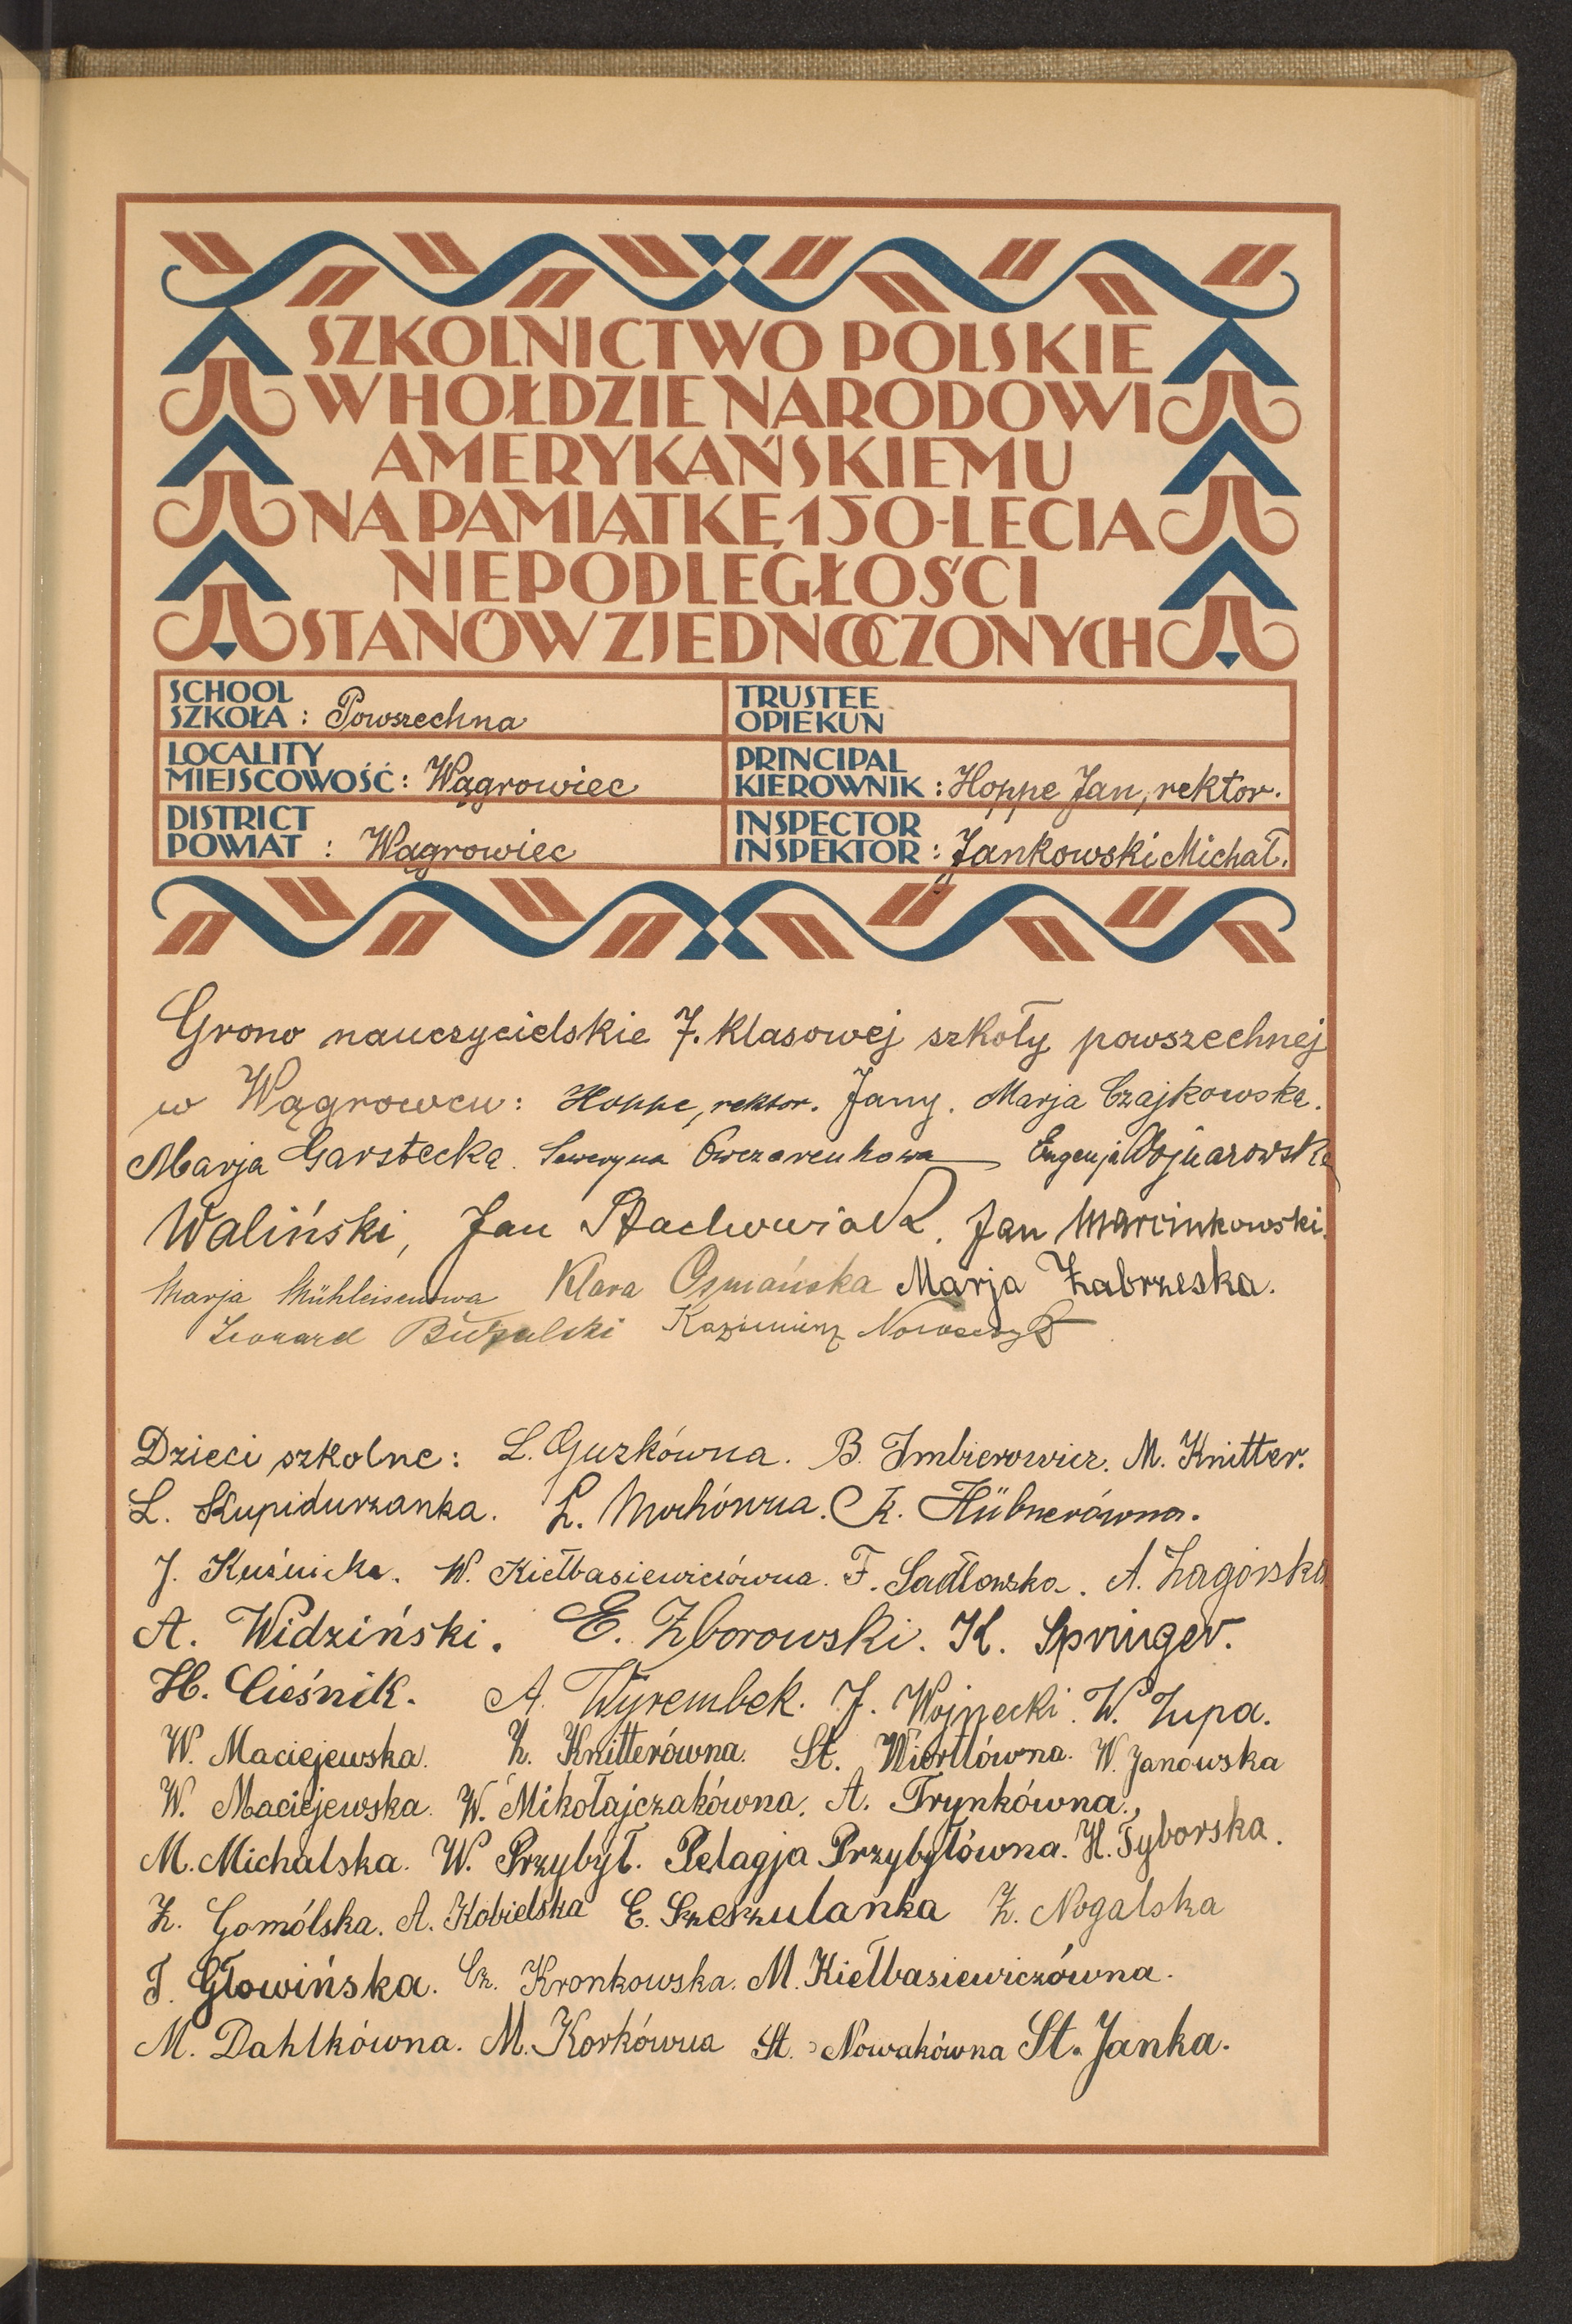 SZKOLNICTWO POLSKIE
W HOŁDZIE NARODOWI
AMERYKAŃSKIEMU
NA PAMIĄTKĘ 150-LECIA
NIEPODLEGŁOŚCI
STANÓW ZJEDNOCZONYCH
SCHOOL
SZKOŁA : Powszechna
TRUSTEE
OPIEKUN
LOCALITY
MIEJSCOWOŚĆ : Wągrowiec
PRINCIPAL
KIEROWNIK : Hoppe Jan, rektor.
DISTRICT
POWIAT : Wągrowiec
INSPECTOR
INSPEKTOR : Jankowski Michał.
Grono nauczycielskie 7. klasowej szkoły powszechnej
w Wągrowcu: Hoppe, rektor. Jany. Marja Czajkowska.
Marja Garstecka. Seweryna Owczarenkowa Eugenja Wojnarowska
Waliński, Jan Stachowiak. Jan Marcinkowski.
Marja Mühleisenowa Klara Osmańska Marja Zabrzeska.
Leonard Kazimierz
Dzieci szkolne: L. Guzkówna. B. Imbierowicz. M. Knitter.
L. Kupidurzanka. Ł. Mochówna. K. Hübnerówna.
J. Kuśnicka. W. Kiełbasiewiczówna. F. Sadłowska. A. Zagórska
A. Widziński. E. Zborowski. K. Springer.
H. Cieśnik. A. Wyrembek. J. Wojnecki. W. Zupa.
W. Maciejewska. Z. Knitterówna. St. Wiertlówna. W. Janowska
W. Maciejewska. W. Mikołajczakówna. A. Trynkówna.,
M. Michalska. W. Przybył. Pelagja Przybyłówna. H. Tyborska.
Z. Gomólska. A. Kobielska E. Szeszulanka Z. Nogalska
T. Głowińska. Cz. Kronkowska. M. Kiełbasiewiczówna.
M. Dahlkówna. M. Korkówna St. Nowakówna St. Janka.